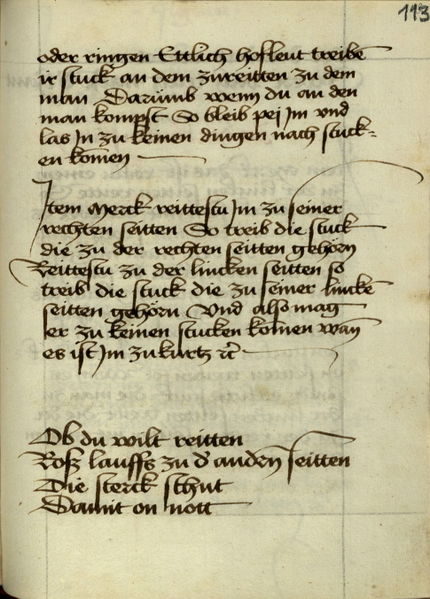 113
oder ringen Ettlich hofleut treibē
ir stuck an dem zureitten zu dem
man Darumb wenn du an den
man kompst So bleib pej Im vnd
las In zu keinen dingen nach stuck=
en komen
Item Merck reittestu Im zu seiner
rechten seitten So treib die stuck
die zu der rechten seitten gehörn
Reittestu zu der lincken seitten so
treib die stuck die zu seiner lincke
seitten gehörn Vnd also mag
er zu keinen stucken komen wan
es ist Im zu kurtz ꝛc
Ob du wilt reitten
Roß lauffs zu d' anderñ seitten
Die sterck schut
Damit on nott